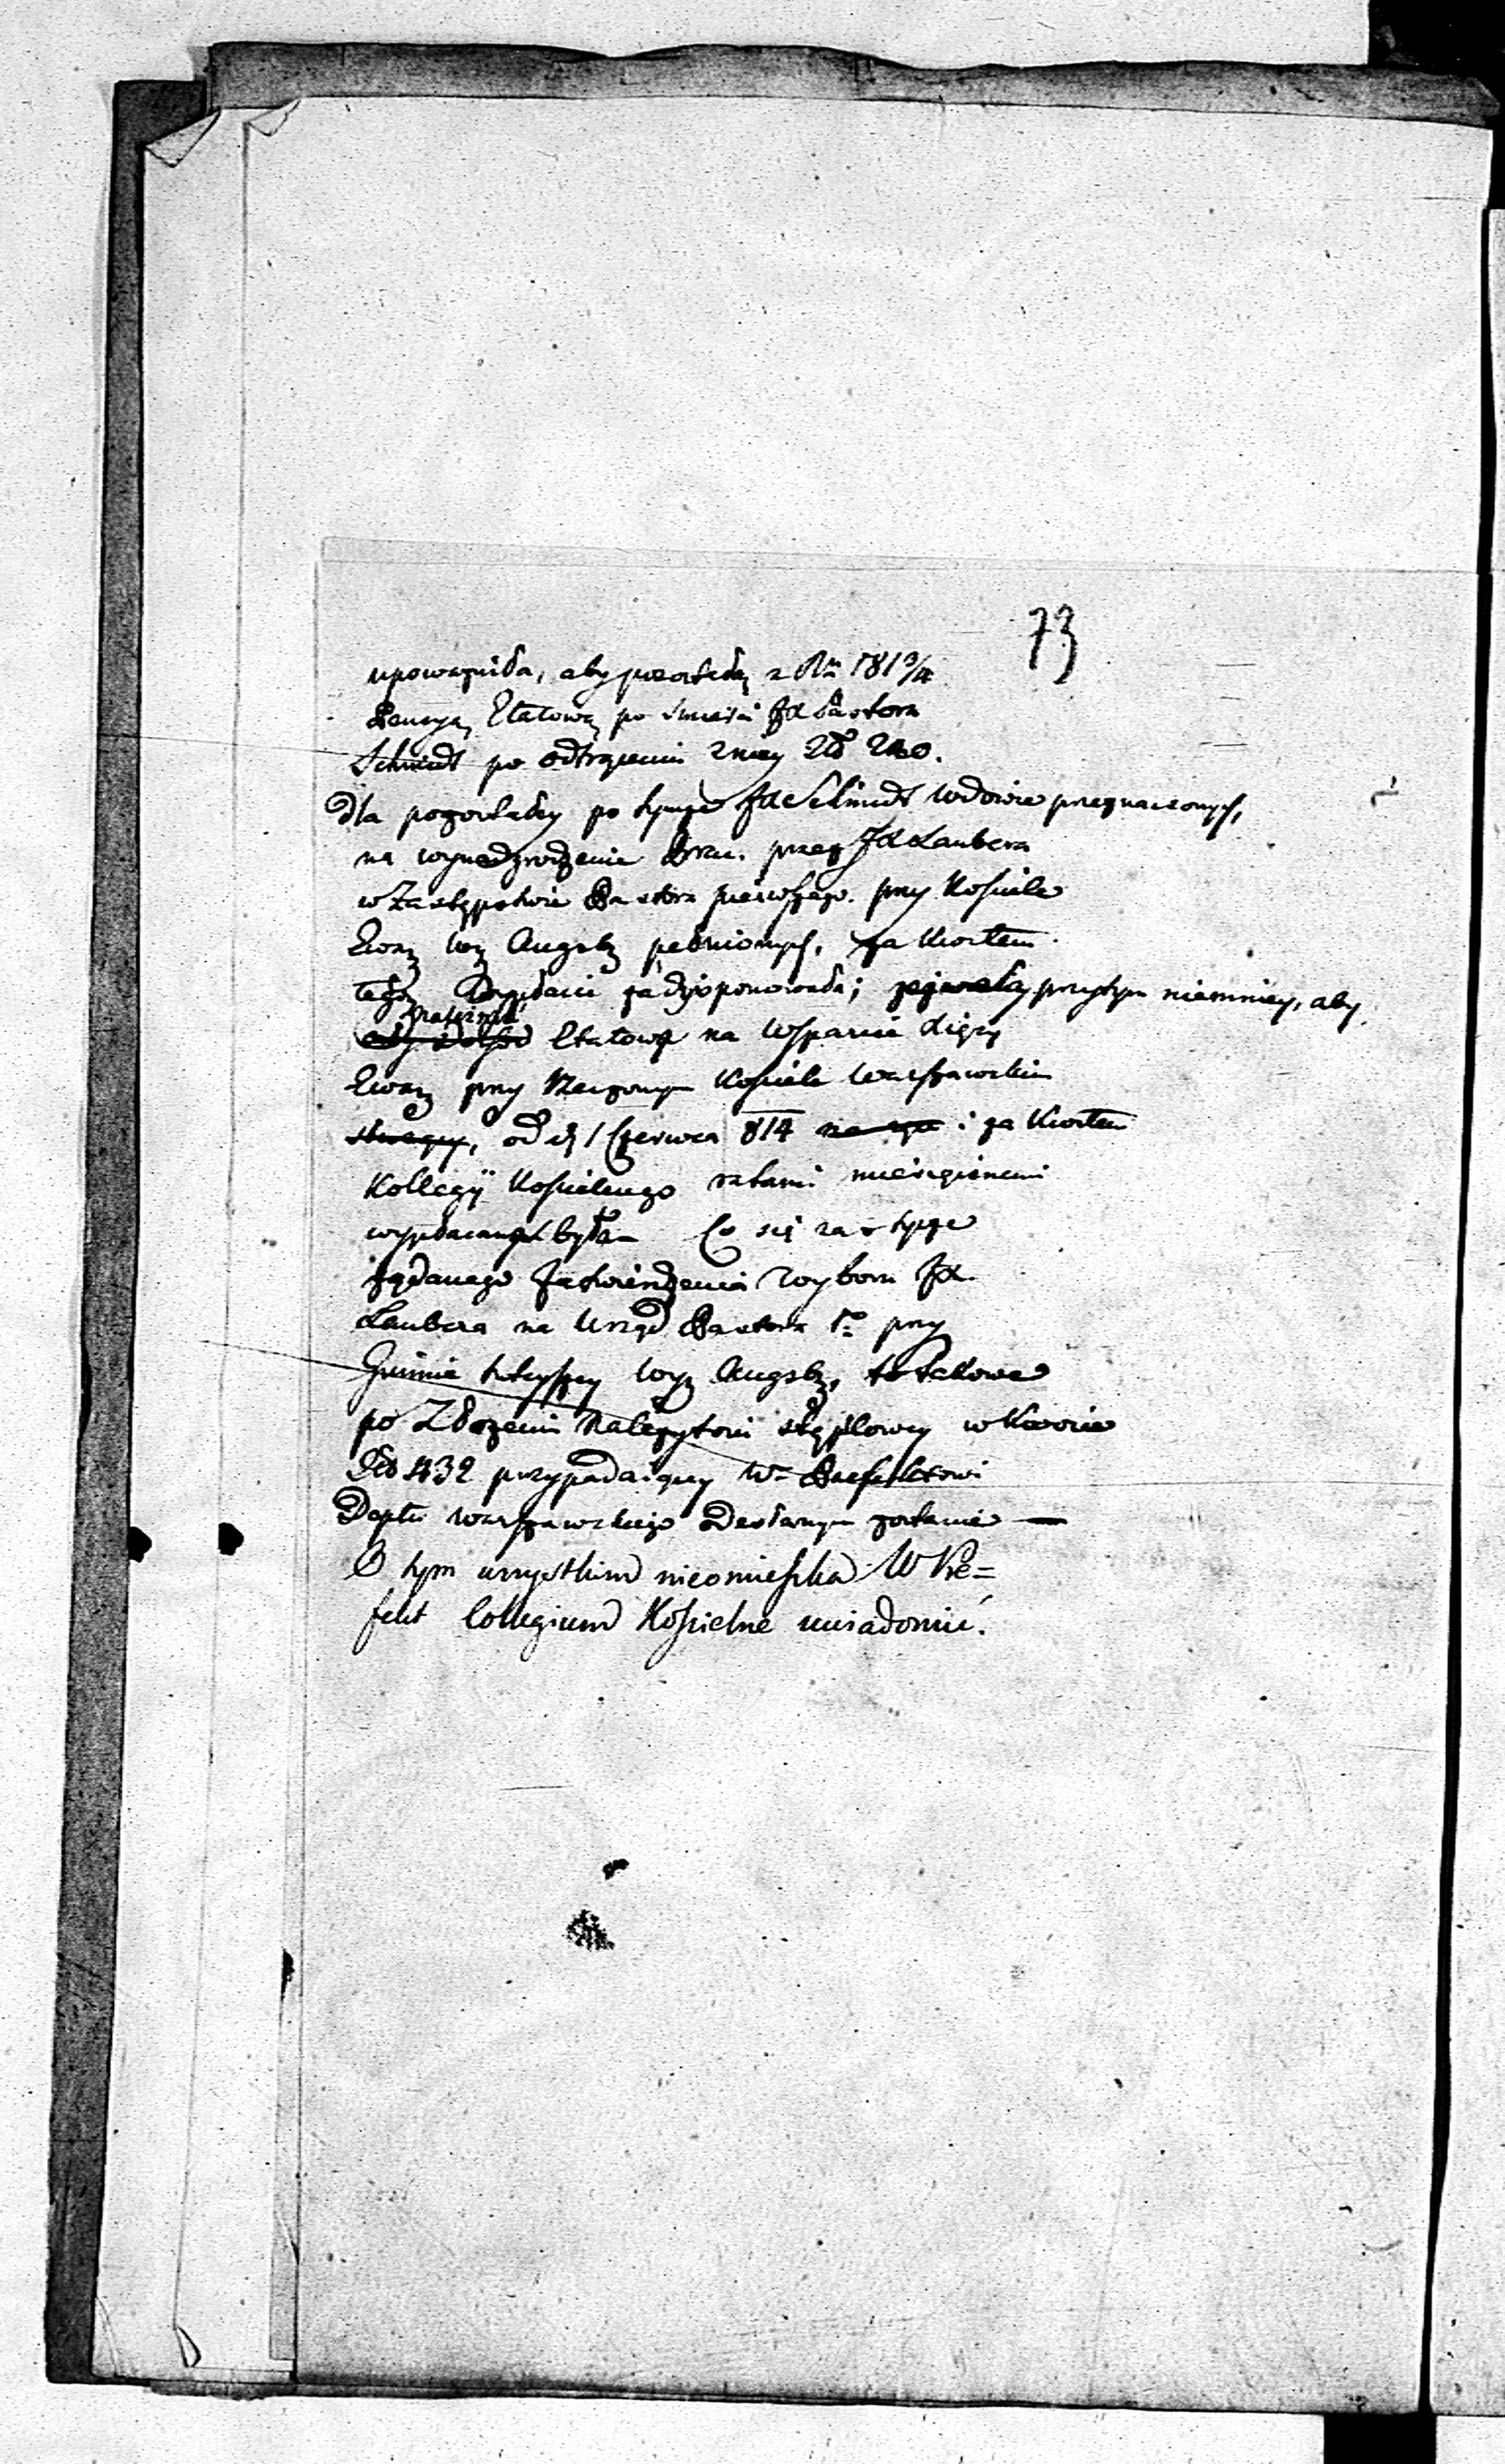 73
upoważniła, aby pozostałą z Ru 1813/4
Pensyą Etatową po śmierci Jx Pastora
Schmidt po odtrąceniu z niey Zł 240.
dla pozostałey po tymże Jx Schmidt wdowie przeznaczonych,
na wynadgrodzenie przez Jx Laubera
w Zastępstwie Pastora pierwszego przy Kościele
Ewang Wyz Augsb pełnionych, za Kwitem
tegoż Wypłacić zadysponowała; przytym niemniey, aby
Etatowa na Wsparcie Xięży
Ewang przy Rzeczonym Kościele Warszawskim
od d 1 Czerwca 814 i za Kwitem
Kollegij Kościelnego ratami miesięcznemi
wypłacaną była Co się zaś tycze
żądanego Zatwierdzenia wyboru Jx
Laubera na Urząd Pastora 1o przy
Gminie tuteyszey Wyz Augsb, to takowe
po Złożeniu Należytości stęplowey w Kwocie
Zło 432 przypadaiącey W Prefektowi
Deptu Warszawskiego Zesłanym zostanie —
O tym wszystkim nieomieszka W Pre=
fekt Collegium Kościelne uwiadomić.